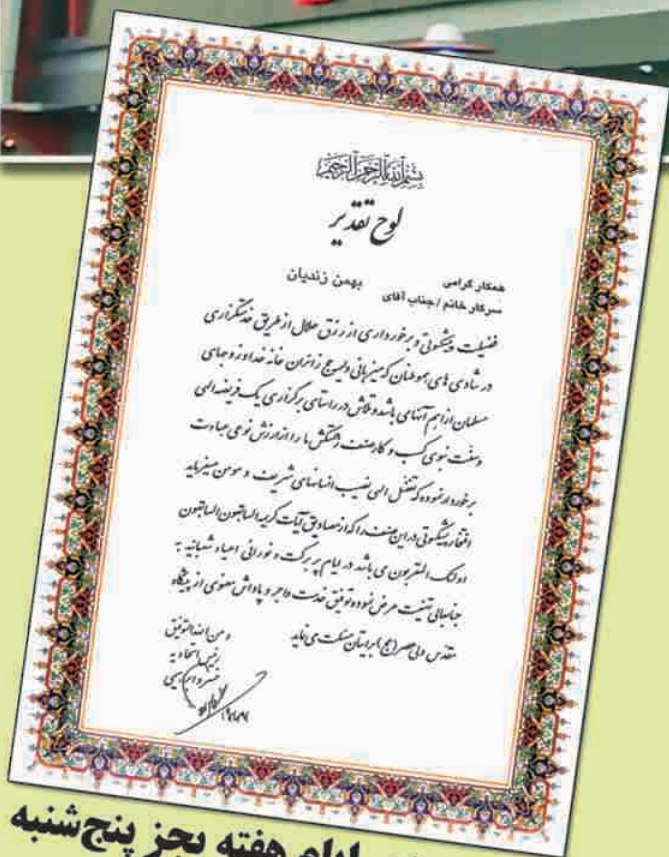 بسم الله الرحمن الرحیم
لوح تقدیر
همکار گرامی
سرکار خانم / جناب آقای بهمن زندیان
فضیلت پیشکسوتی و برخورداری از رزق حلال از طریق خدمتگزاری
در شادی های هموطنان که میزبانی و لیمه حج زائران خانه خدا و زوجهای
مسلمان از اهم آنها می باشد و تلاش در راستای برگزاری یک فریضه الهی
و سنت نبوی کسب و کار صنعت زحمتکش ما را از ارزش نوعی عبادت
برخوردار نموده که تفضل الهی نصیب انسانهای شریف و مومن میفرماید
افتخار پیشکسوتی در این صنف را که از مصادیق آیات کریمه السابقون السابقون
اولئک المقربون می باشد در ایام پر برکت و نورانی اعیاد شعبانیه به
جنابعالی تهنیت عرض نموده توفیق خدمت و اجر و پاداش معنوی از پیشگاه
مقدس ولی عصر (عج) برایتان مسئلت می نماید
و من الله التوفیق
رئیس اتحادیه
ایام هفته بجز پنج‌شنبه